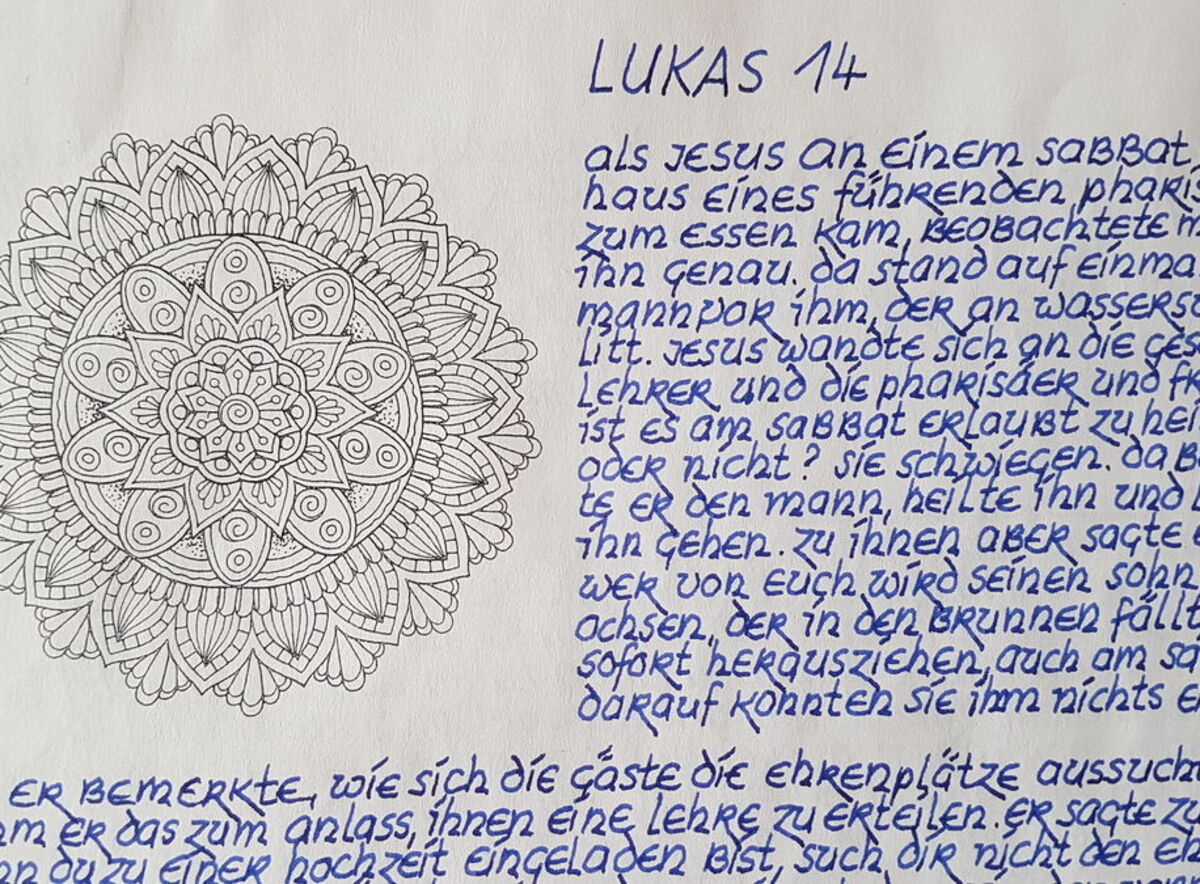 LUKAS 14
als JESUS an EINEM SABBat
haus EINES führenden pharis
zum Essen kam, BEOBachtete m
ihn genau. da stand auf einma
mann vor ihm, der an wassers
litt. JESUS wandte sich an die ges
LEHRER und die pharisäer und fr
ist es am SABBat erlaubt zu hei
oder nicht? sie schwiegen. da B
te er den mann, heilte ihn und
ihn gehen. zu ihnen aber sagte e
wer von euch wird seinen sohn
ochsen, der in den Brunnen fällt
sofort herausziehen, auch am sa
darauf konnten sie ihm nichts e
er bemerkte, wie sich die gäste die ehrenplätze aussucht
hm er das zum anlass, ihnen eine lehre zu erteilen. er sagte zu
nn du zu einer hochzeit eingeladen bist, such dir nicht den eh